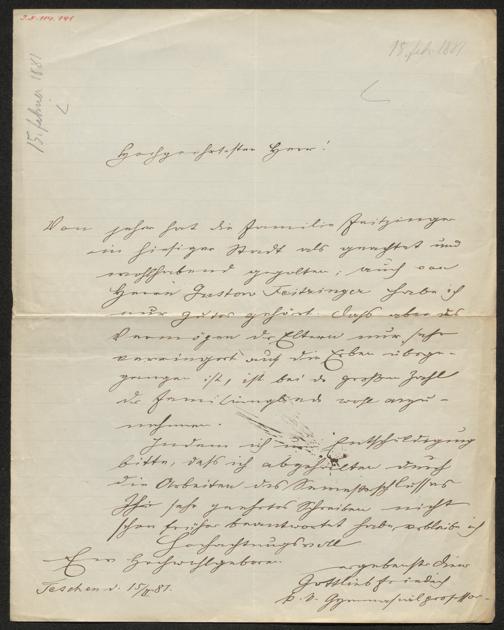 15. feb. 1881
15. februar 1881
Hochgeehrtester Herr!
Von jeher hat die Familie Feitzinger
in hiesiger Stadt als geachtet und
wohlhabend gegolten; auch von
Herrn Gustav Feitzinger habe ich
nur gutes gehört. Dass aber das
Vermögen der Eltern nur sehr
verringert auf die Erben überge-
gangen ist, ist bei der großen Zahl
der Familienglieder wohl anzu-
nehmen.
Indem ich um Entschuldigung
bitte, daß ich abgehalten durch
die Arbeiten des Semesterschlusses
Ihr sehr geehrtes Schreiben nicht
schon früher beantwortet habe, verbleibe ich
Hochachtungsvoll
Euer Hochwohlgeboren
ergebenster Diener
Gottlieb Friedrich
k. k. Gymnasialprofessor
Teschen d. 15/II. 81.